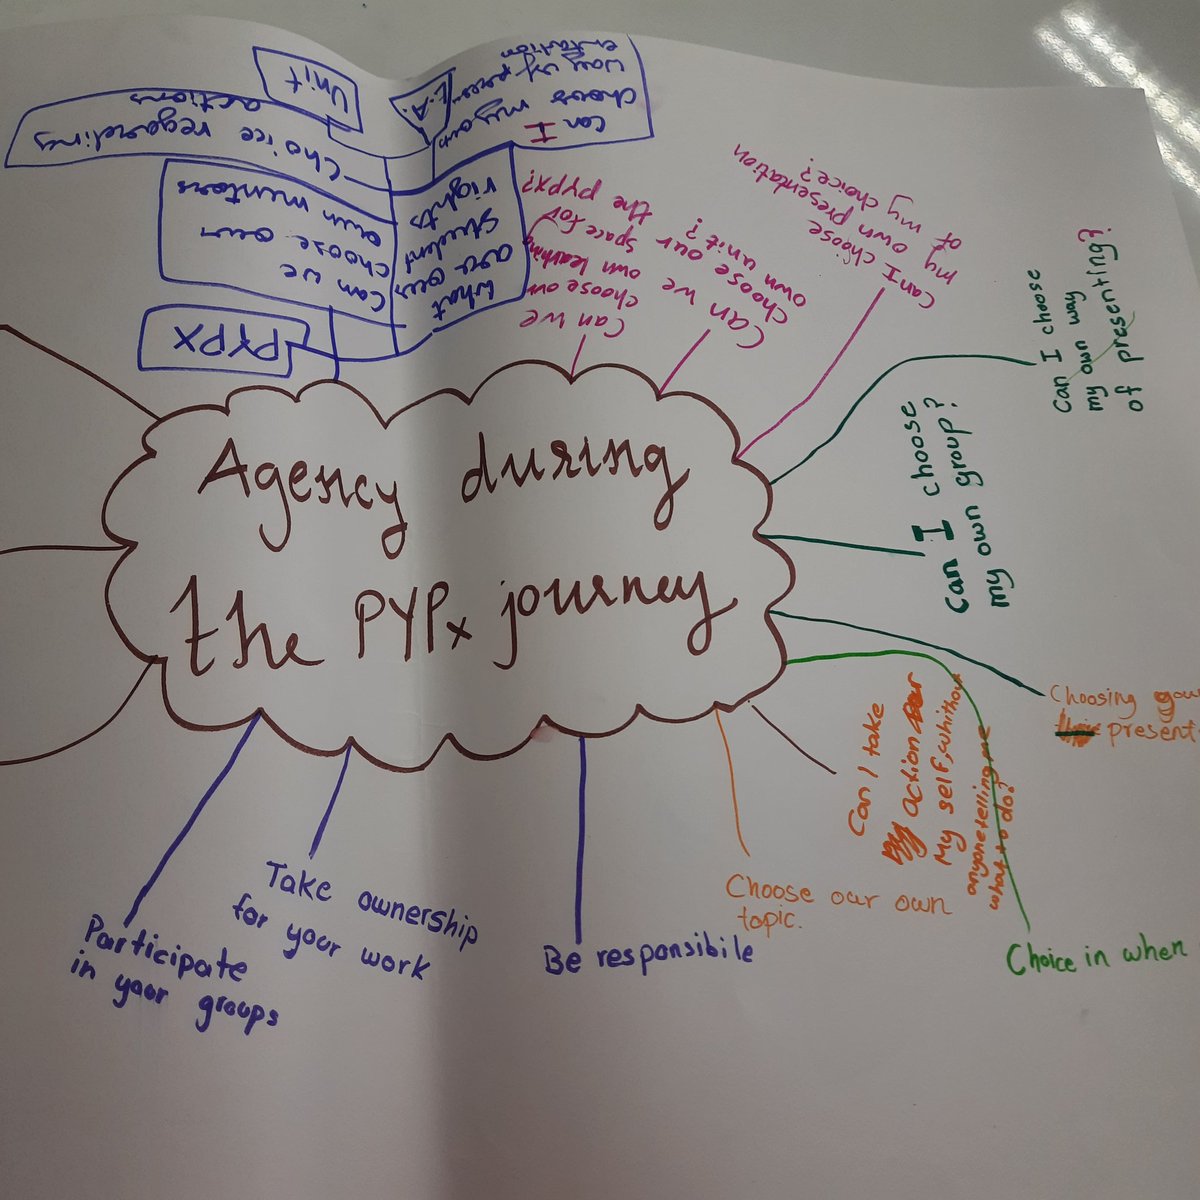 Agency during
the PYPx journey
Unit
L.A.
Can I
choose my own
way of presen
entation
Choice regarding
actions
Can we
choose our
own mentors
What
are our
student
rights
PYPX
Can we
choose our
own learning
space for
the PYPX?
Can we
choose our
own unit?
Can I choose
my own presentation
of my choice?
Can I choose
my own way
of presenting?
Can I choose
my own group?
Choosing your
present
Can I take
action
My self, whithout
anyone telling me
what to do?
Choice in when
Choose our own
topic.
Be responsibile
Take ownership
for your work
Participate
in your groups